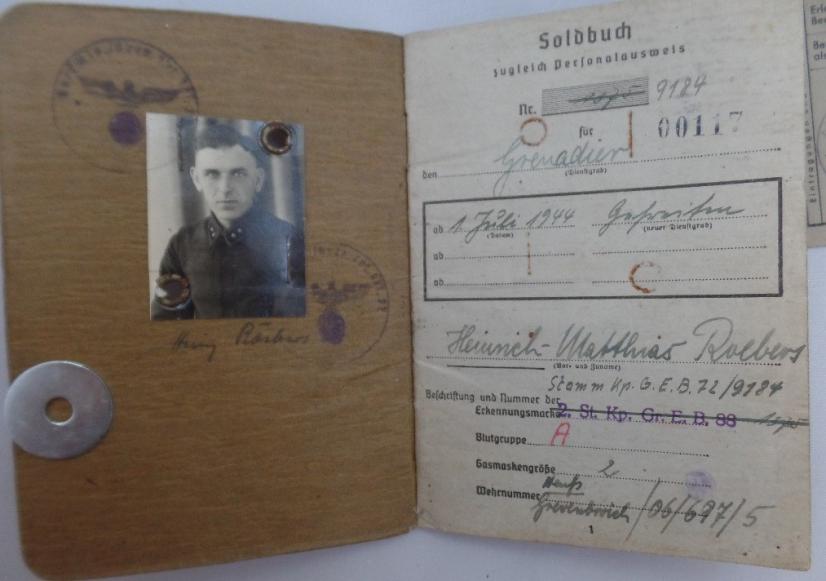 Röebers
Soldbuch
zugleich Personalausweis
Nr. 9184
für 00117
den Grenadier
(Dienstgrad)
ab 1. Juli 1944 Gefreiten
(Datum) (neuer Dienstgrad)
ab
ab
Heinrich-Matthias Roebers
(Vor- und Zuname)
Stamm Kp. G.E.B. 72/9184
Beschriftung und Nummer der
Erkennungsmarke 2. St. Kp. Gr. E. B. 88
Blutgruppe A
Gasmaskengröße 2
Neuß
Wehrnummer Grevenbroich/06/697/5
1
Eintragungen